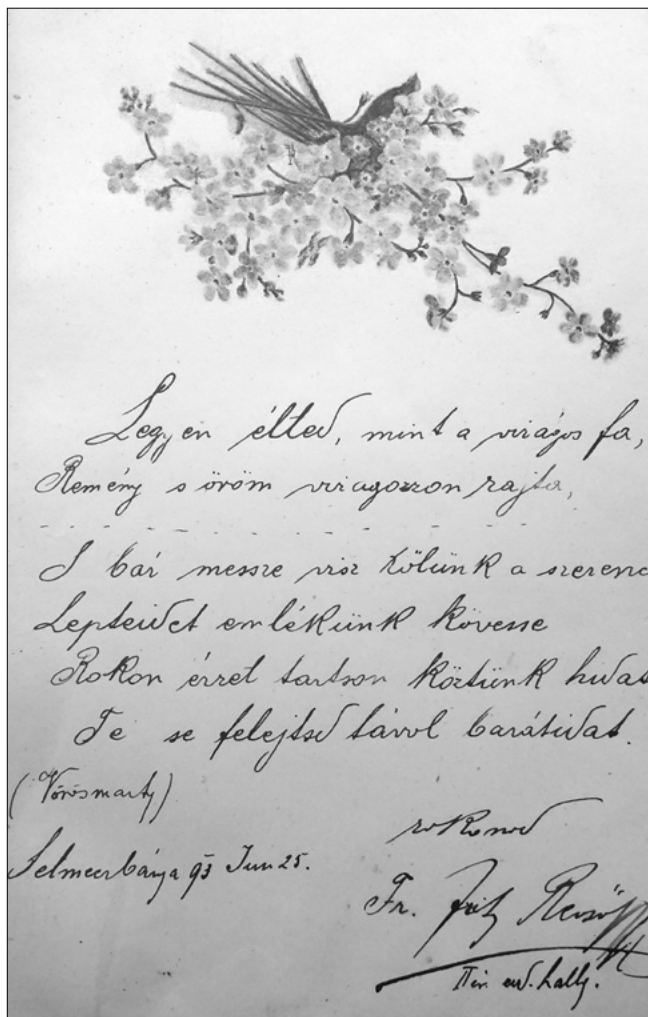 Legyen élted, mint a virágos fa,
Remény s öröm viragozzon rajta,
S bár messze visz tőlünk a szerenc
Lepteidet emlékünk kövesse
Rokon érzet tartson köztünk hidat
Te se felejtsd távol barátidat.
(Vörösmarty)
rokonod
Selmeczbánya 93 Jun 25.
Fr. Fritz
II év. erd. hallg.